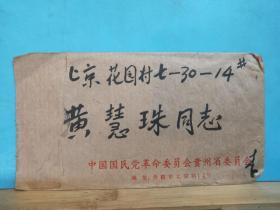 上京花园村七一30一14#
黄慧珠同志
中国国民党革命委员会贵州省委员会